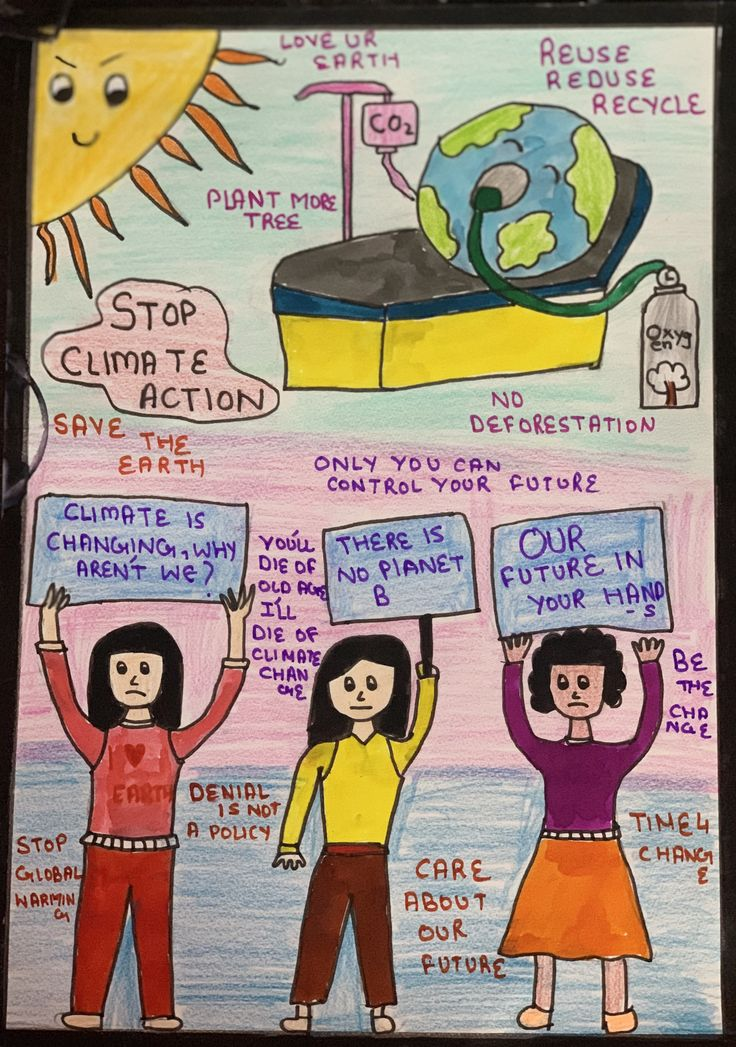 LOVE UR
EARTH
REUSE
REDUSE
RECYCLE
CO2
PLANT MORE
TREE
STOP
CLIMATE
ACTION
Oxyg
en
NO
DEFORESTATION
SAVE THE
EARTH
ONLY YOU CAN
CONTROL YOUR FUTURE
CLIMATE IS
CHANGING, WHY
AREN'T WE?
YOU'LL
DIE OF
OLD AGE
I'LL
DIE OF
CLIMATE
CHAN
GE
THERE IS
NO PLANET
B
OUR
FUTURE IN
YOUR HAND
-S
BE
THE
CHA
NGE
I ♥
EARTH
DENIAL
IS NOT
A POLICY
STOP
GLOBAL
WARMIN
G
CARE
ABOUT
OUR
FUTURE
TIME4
CHANG
E